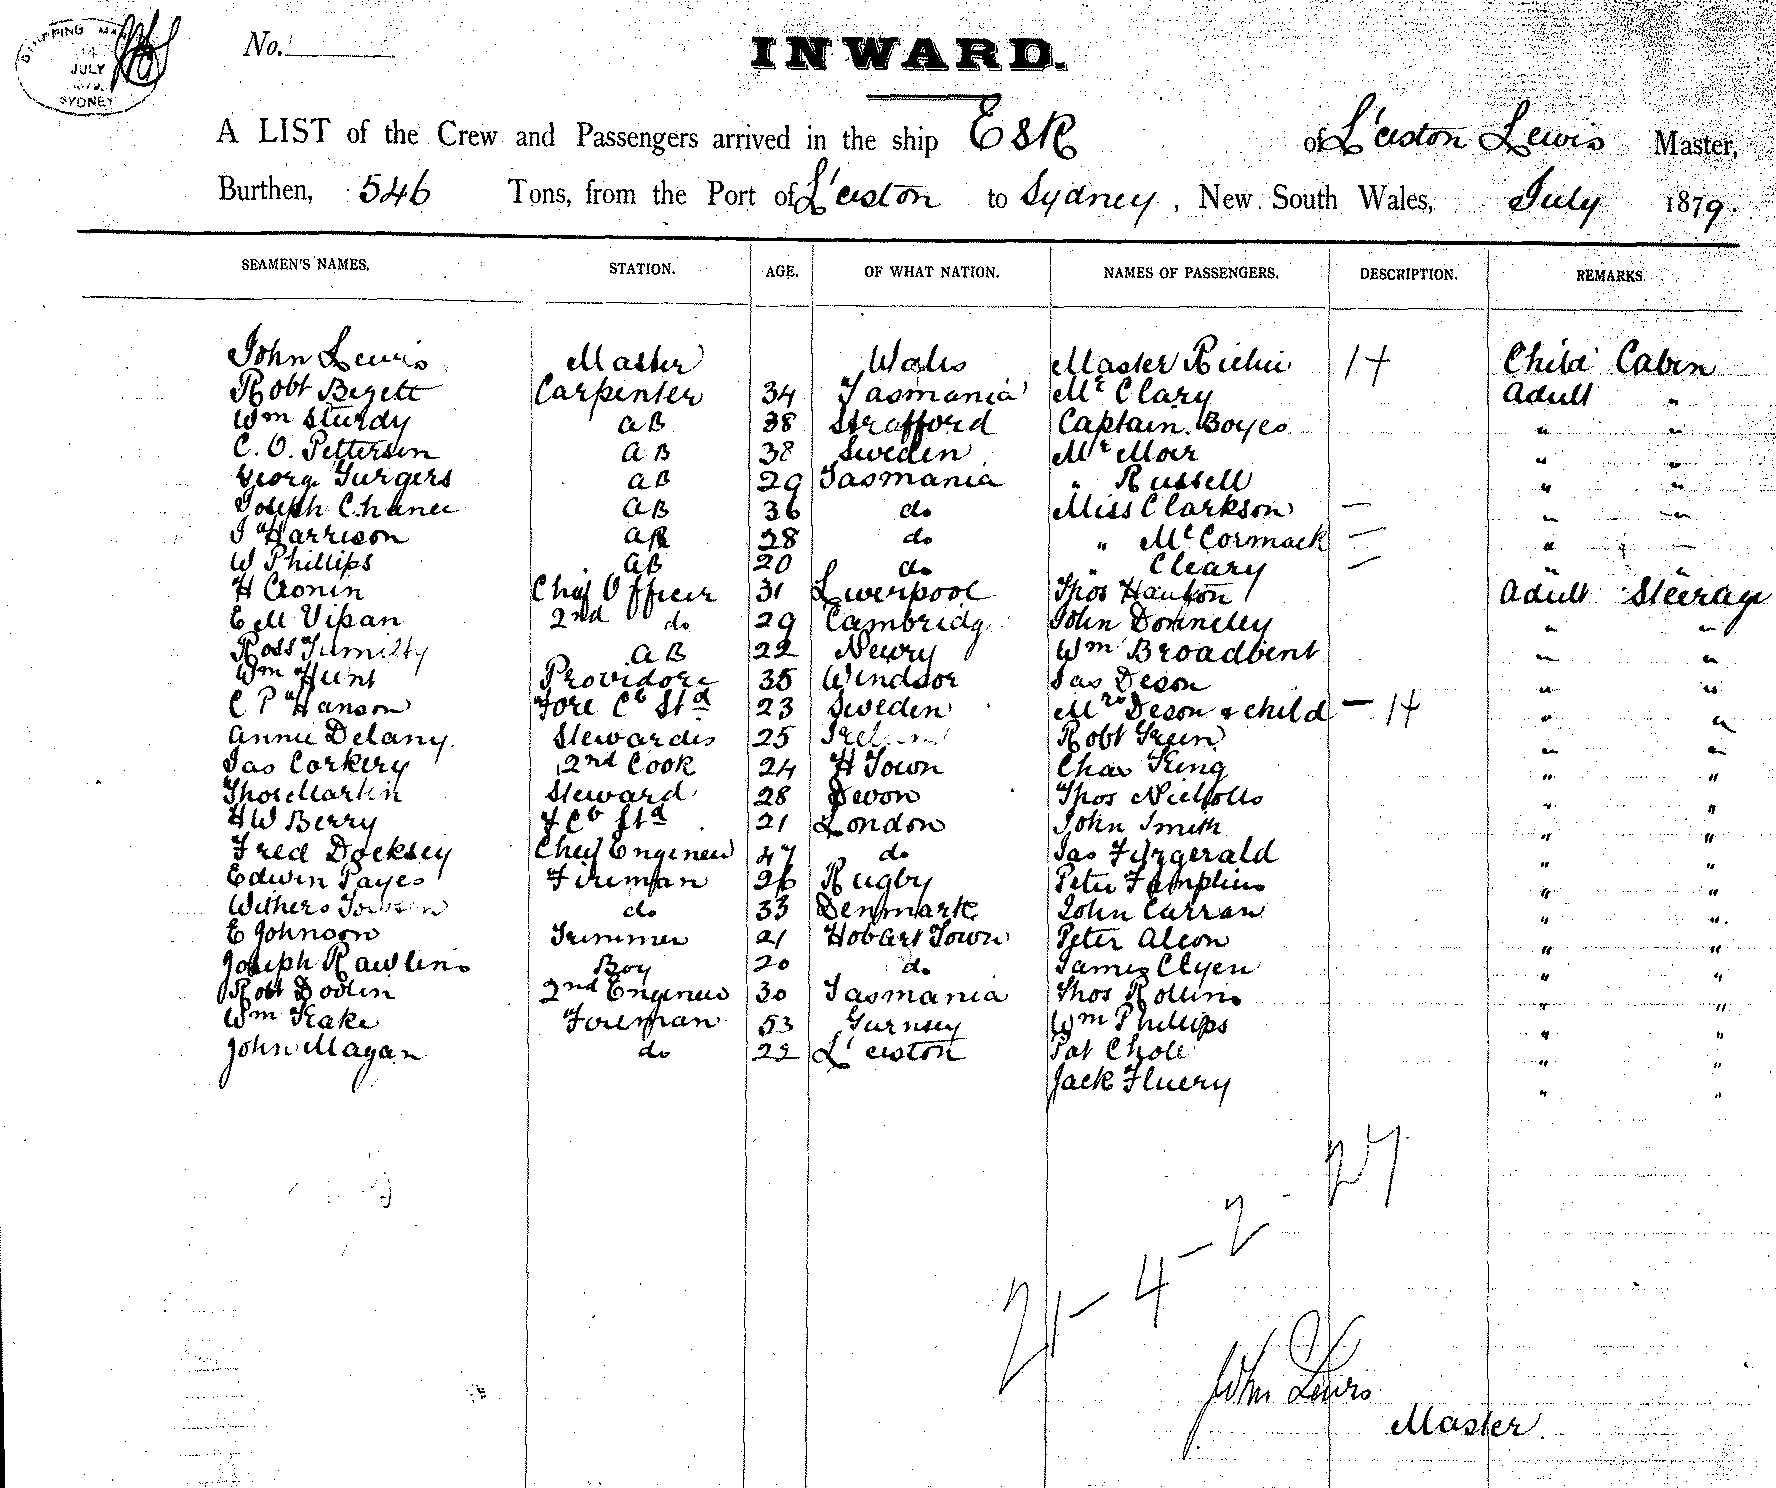 SHIPPING MA
14
JULY
1879
SYDNEY
No.
INWARD.
A LIST of the Crew and Passengers arrived in the ship Esk of L'aston Lewis Master,
Burthen, 546 Tons, from the Port of L'aston to Sydney, New South Wales, July 1879.
SEAMEN'S NAMES. STATION. AGE. OF WHAT NATION. NAMES OF PASSENGERS. DESCRIPTION. REMARKS
John Lewis Master Wales Master Richie 14 Child Cabin
Robt Bezett Carpenter 34 Tasmania Mr Clary Adult "
Wm Sturdy AB 38 Strafford Captain Boyes " "
C. O. Pettersen AB 38 Sweden Mr Moir " "
George Gurgers AB 29 Tasmania " Russell " "
Joseph Chanee AB 36 do Miss Clarkson — " "
J Harrison AB 28 do " McCormack — " "
W Phillips AB 20 do " Cleary — " "
H Cronin Chief Officer 31 Liverpool Thos Hanlon Adult Steerage
E M Vipan 2nd do 29 Cambridg John Donneley " "
Ross Tumilty AB 22 Newry Wm Broadbent " "
Wm Hunt Providore 35 Windsor Jas Deson " "
C P Hanson Fore Cb Std 23 Sweden Mrs Deson & child — 14 " "
Annie Delany Stewardes 25 Robt Green " "
Jas Corkery 2nd Cook 24 H Town Chas King " "
Thos Martin Steward 28 Devon Thos Nicholls " "
HW Berry F Cb Std 21 London John Smith " "
Fred Docksey Chief Engineer 47 do Jas Fitzgerald " "
Edwin Payes Fireman 26 Rugby Peter Tamplins " "
Withers do 33 Denmark John Curran " "
E Johnson Trimmer 21 Hobart Town Peter Alcon " "
Joseph Rawlins Boy 20 do James Clyen " "
Robt Dodlin 2nd Engineer 30 Tasmania Thos Rollins " "
Wm Teake Foreman 53 Gurnsey Wm Phillips " "
John Magan do 22 L'aston Pat Chole " "
Jack Fluery " "
21 – 4 – 2 - 27
John Lewis
Master.